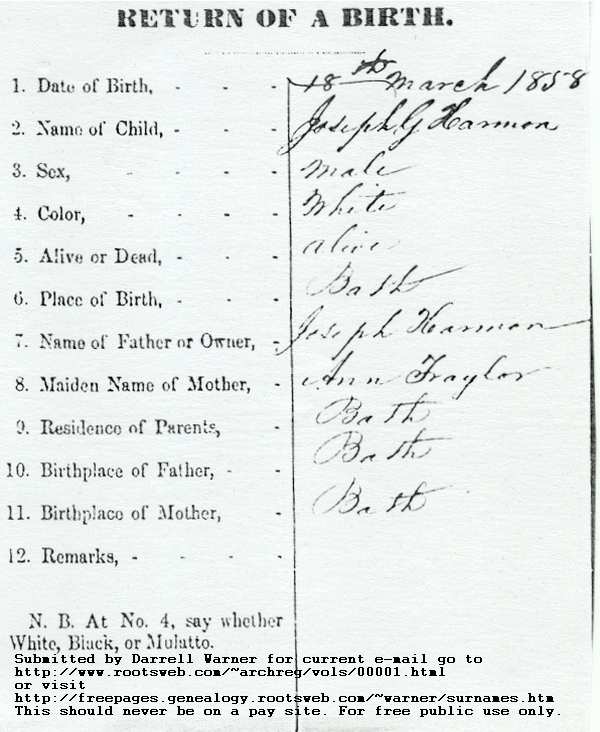 RETURN OF A BIRTH.
1. Date of Birth, - - - 18th March 1858
2. Name of Child, - - - Joseph G Harmon
3. Sex, - - - - male
4. Color, - - - - White
5. Alive or Dead, - - - alive
6. Place of Birth, - - - Bath
7. Name of Father or Owner, - Joseph Harmon
8. Maiden Name of Mother, - Ann Traylor
9. Residence of Parents, - Bath
10. Birthplace of Father, - - Bath
11. Birthplace of Mother, - Bath
12. Remarks, - - - -
N. B. At No. 4, say whether
White, Black, or Mulatto.
Submitted by Darrell Warner for current e-mail go to
http://www.rootsweb.com/~archreg/vols/00001.html
or visit
http://freepages.genealogy.rootsweb.com/~warner/surnames.htm
This should never be on a pay site. For free public use only.